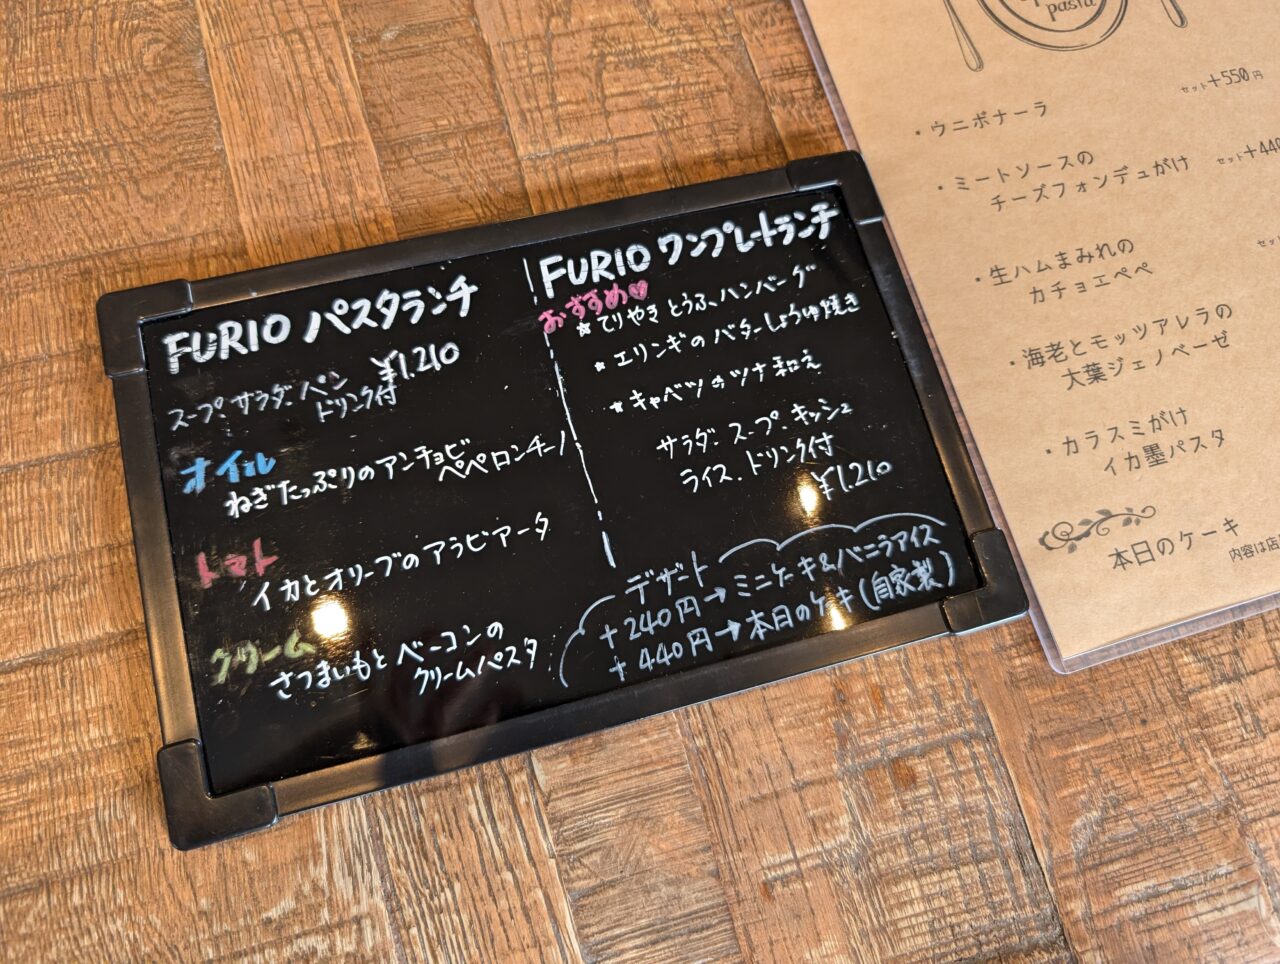 FURIO パスタランチ
¥1,210
スープ・サラダ・パン
ドリンク付
オイル
ねぎたっぷりのアンチョビ
ペペロンチーノ
トマト
イカとオリーブのアラビアータ
クリーム
さつまいもとベーコンの
クリームパスタ
FURIO ワンプレートランチ
おすすめ♡
★てりやきとうふハンバーグ
★エリンギのバターしょうゆ焼き
★キャベツのツナ和え
サラダ・スープ・キッシュ
ライス・ドリンク付
¥1,210
デザート
+240円→ミニケーキ&バニラアイス
+440円→本日のケーキ(自家製)
pasta
セット+550円
・ウニボナーラ
セット+440
・ミートソースの
チーズフォンデュがけ
セット
・生ハムまみれの
カチョエペペ
・海老とモッツアレラの
大葉ジェノベーゼ
・カラスミがけ
イカ墨パスタ
本日のケーキ
内容は店